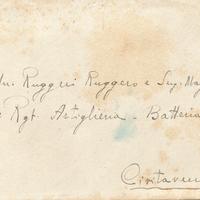 Ruggeri Ruggero e Sug. Mag
Rgt. Artiglieria - Batteria
Civitavec